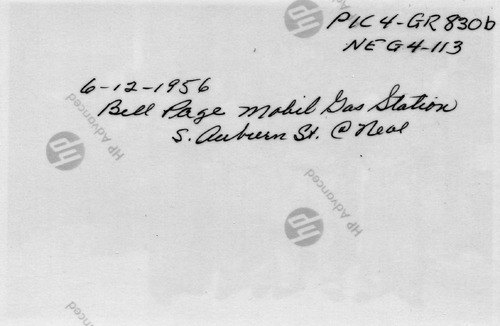 PIC4-GR830b
NEG4-113
6-12-1956
Bill Page Mobil Gas Station
S. Auburn St. @ Neal
hp HP Advanced
hp HP Advanced
HP Advanced
HP Advanced